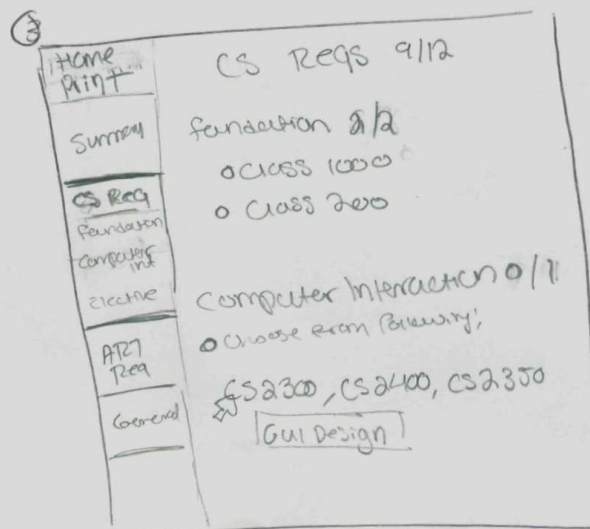 3
Home
Print
Summary
CS Req
Foundation
Computer
Int
Elective
ART
Req
General
CS Reqs 9/12
Foundation 2/2
Class 1000
Class 200
Computer Interaction 0/1
Choose from following:
CS2300, CS2400, CS2350
GUI Design